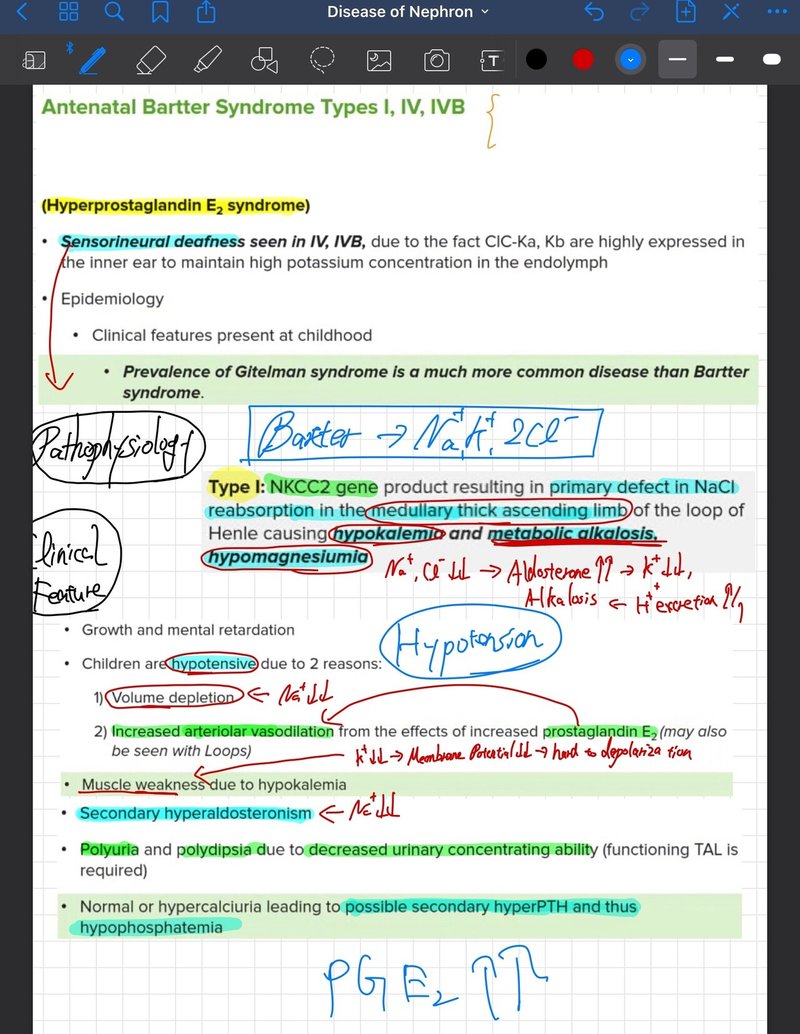 Disease of Nephron
T
Antenatal Bartter Syndrome Types I, IV, IVB
(Hyperprostaglandin E₂ syndrome)
• Sensorineural deafness seen in IV, IVB, due to the fact ClC-Ka, Kb are highly expressed in
the inner ear to maintain high potassium concentration in the endolymph
• Epidemiology
• Clinical features present at childhood
• Prevalence of Gitelman syndrome is a much more common disease than Bartter
syndrome.
Bartter → Na⁺, K⁺, 2Cl⁻
Pathophysiology
Type I: NKCC2 gene product resulting in primary defect in NaCl
reabsorption in the medullary thick ascending limb of the loop of
Henle causing hypokalemia and metabolic alkalosis,
hypomagnesiumia
Clinical
Feature
Na⁺, Cl⁻ ↓↓ → Aldosterone ↑↑ → K⁺ ↓↓,
Alkalosis ← H⁺ excretion ↑↑
• Growth and mental retardation
Hypotension
• Children are hypotensive due to 2 reasons:
1) Volume depletion ← Na⁺ ↓↓
2) Increased arteriolar vasodilation from the effects of increased prostaglandin E₂ (may also
be seen with Loops)
K⁺ ↓↓ → Membrane Potential ↓↓ → hard to depolarization
• Muscle weakness due to hypokalemia
• Secondary hyperaldosteronism ← Na⁺ ↓↓
• Polyuria and polydipsia due to decreased urinary concentrating ability (functioning TAL is
required)
• Normal or hypercalciuria leading to possible secondary hyperPTH and thus
hypophosphatemia
PGE₂ ↑↑